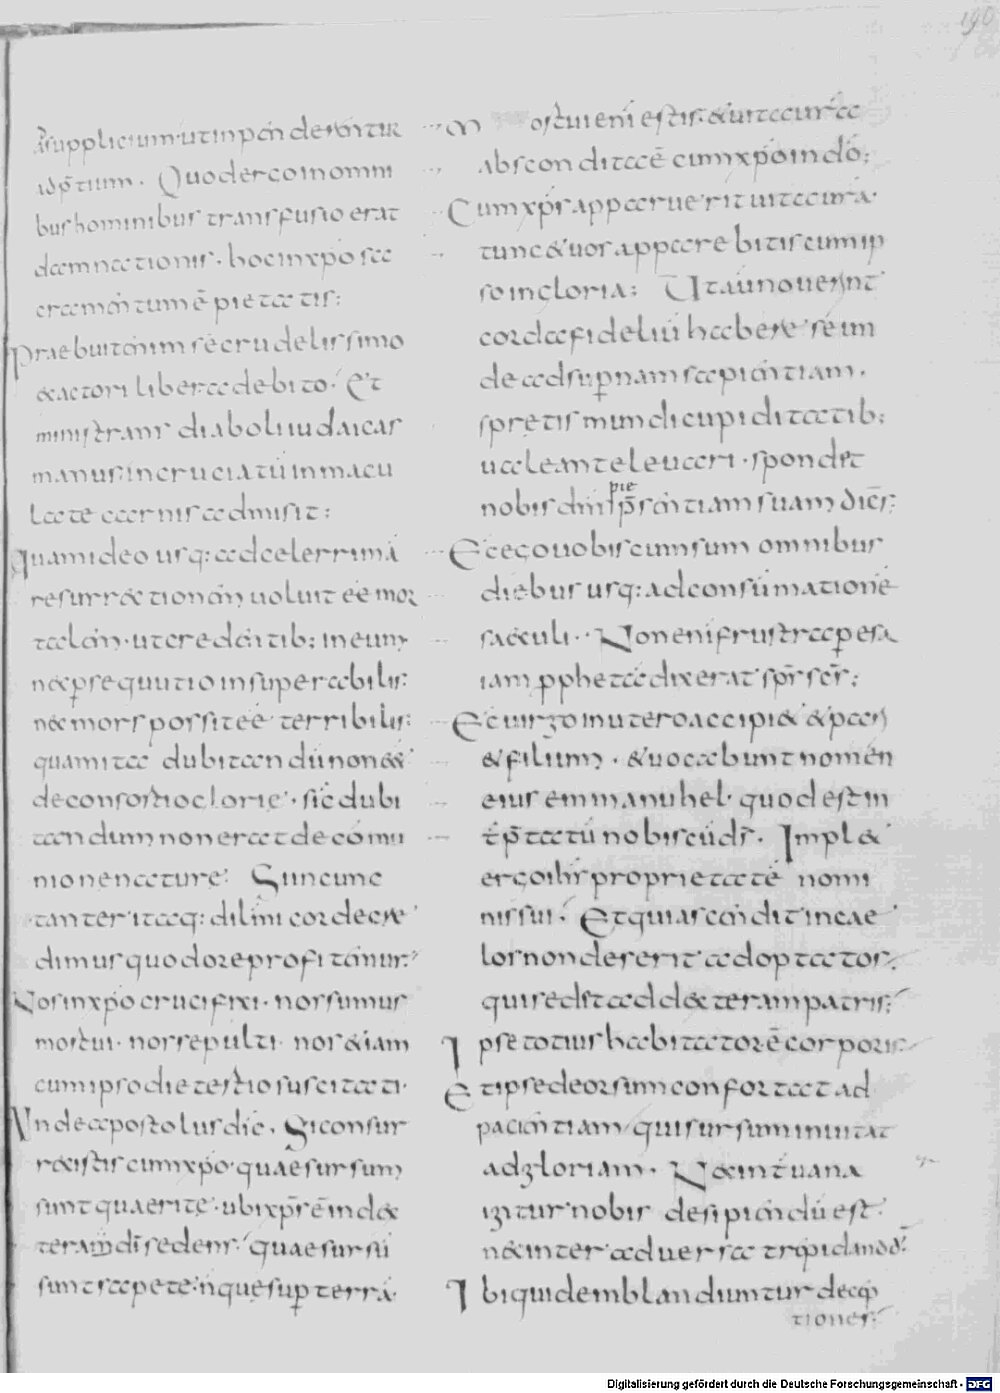 190
ad supplicium utinpoen deretur
adp̄tium. Quod ergo in omni
bus hominibus transfusio erat
damnationis. hoc in xpo sa
cramentum ē pietatis:
Praebuit enim sé crudelissimo
exactori libera debito. Et
ministrans diaboli iudaicas
manus in cruciatū inmacu
late carnis admisit:
Quam ideo usq: ad celerrimā
resurrectionem uoluit eē mor
talem. ut credentib; in eum
nec p̱sequutio insuperabilis:
nec mors possit eē terribilis:
quam ita dubitandū non est
de consortio glorie. sic dubi
tandum non erat de cōmu
nione nature. Si incunc
tanter itaq: dilm̄i corde cre
dimus quod ore profitemur:
Nos in xpo crucifixi. nos sumus
mortui. nos sepulti. nos etiam
cum ipso die tertio suscitati.
Unde apostolus dic̄. Si consur
rexistis cum xpo. quae sursum
sunt quaerite. ubi xp̄s ē in dex
teram dī sedens. quae sursū
sunt sapete. n̄ que sup̱ terrā.
Mortui enī estis. & uita ur̄a
abscondita ē cum xpo in dō:
Cum xpr̄ apparuerit uita ur̄a.
tunc & uos apparebitis cum ip
so in gloria: Ut aū nouerint
corda fideliū habere se un
de ad sup̱nam sapientiam.
spretis mundi cupiditatib;
ualeant eleuari. spondet
nobis dn̄s p̄sentiam suam dicēs:
pie
Ecce ego uobiscum sum omnibus
diebus usq: ad consūmationē
saeculi.. Non enī frustra p̱ esa
iam pphetā dixerat sp̄s sc̄s:
Ecce uirgo in utero accipi& & pari&
& filium. & uocabunt nomen
eius emmanuhel. quod est in
t̄p̄tatū nobiscū d̄s. Impl&
ergo ih̄s proprietatē nomi
nis sui. Et qui ascendit in cae
los non deserit adoptatos.
qui sed& ad dexteram patris:
Ipse totius habitator ē corporis:
Et ipse deorsum confortat ad
pacientiam qui sursum inuitat
ad gloriam. Nec int̄ uana
igitur nobis desipiendū est.
nec inter aduersa trepidandū:
Ibi quidem blandiuntur decep
tiones:
Digitalisierung gefördert durch die Deutsche Forschungsgemeinschaft - DFG